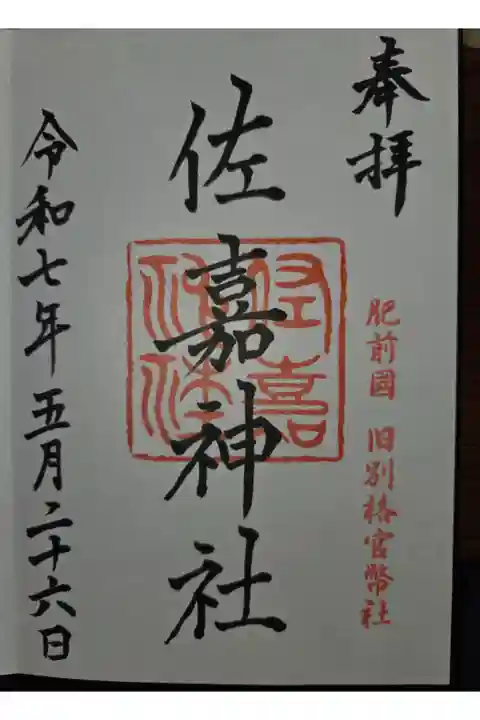 奉拝
肥前国 旧別格官幣社
佐嘉神社
令和七年五月二十六日